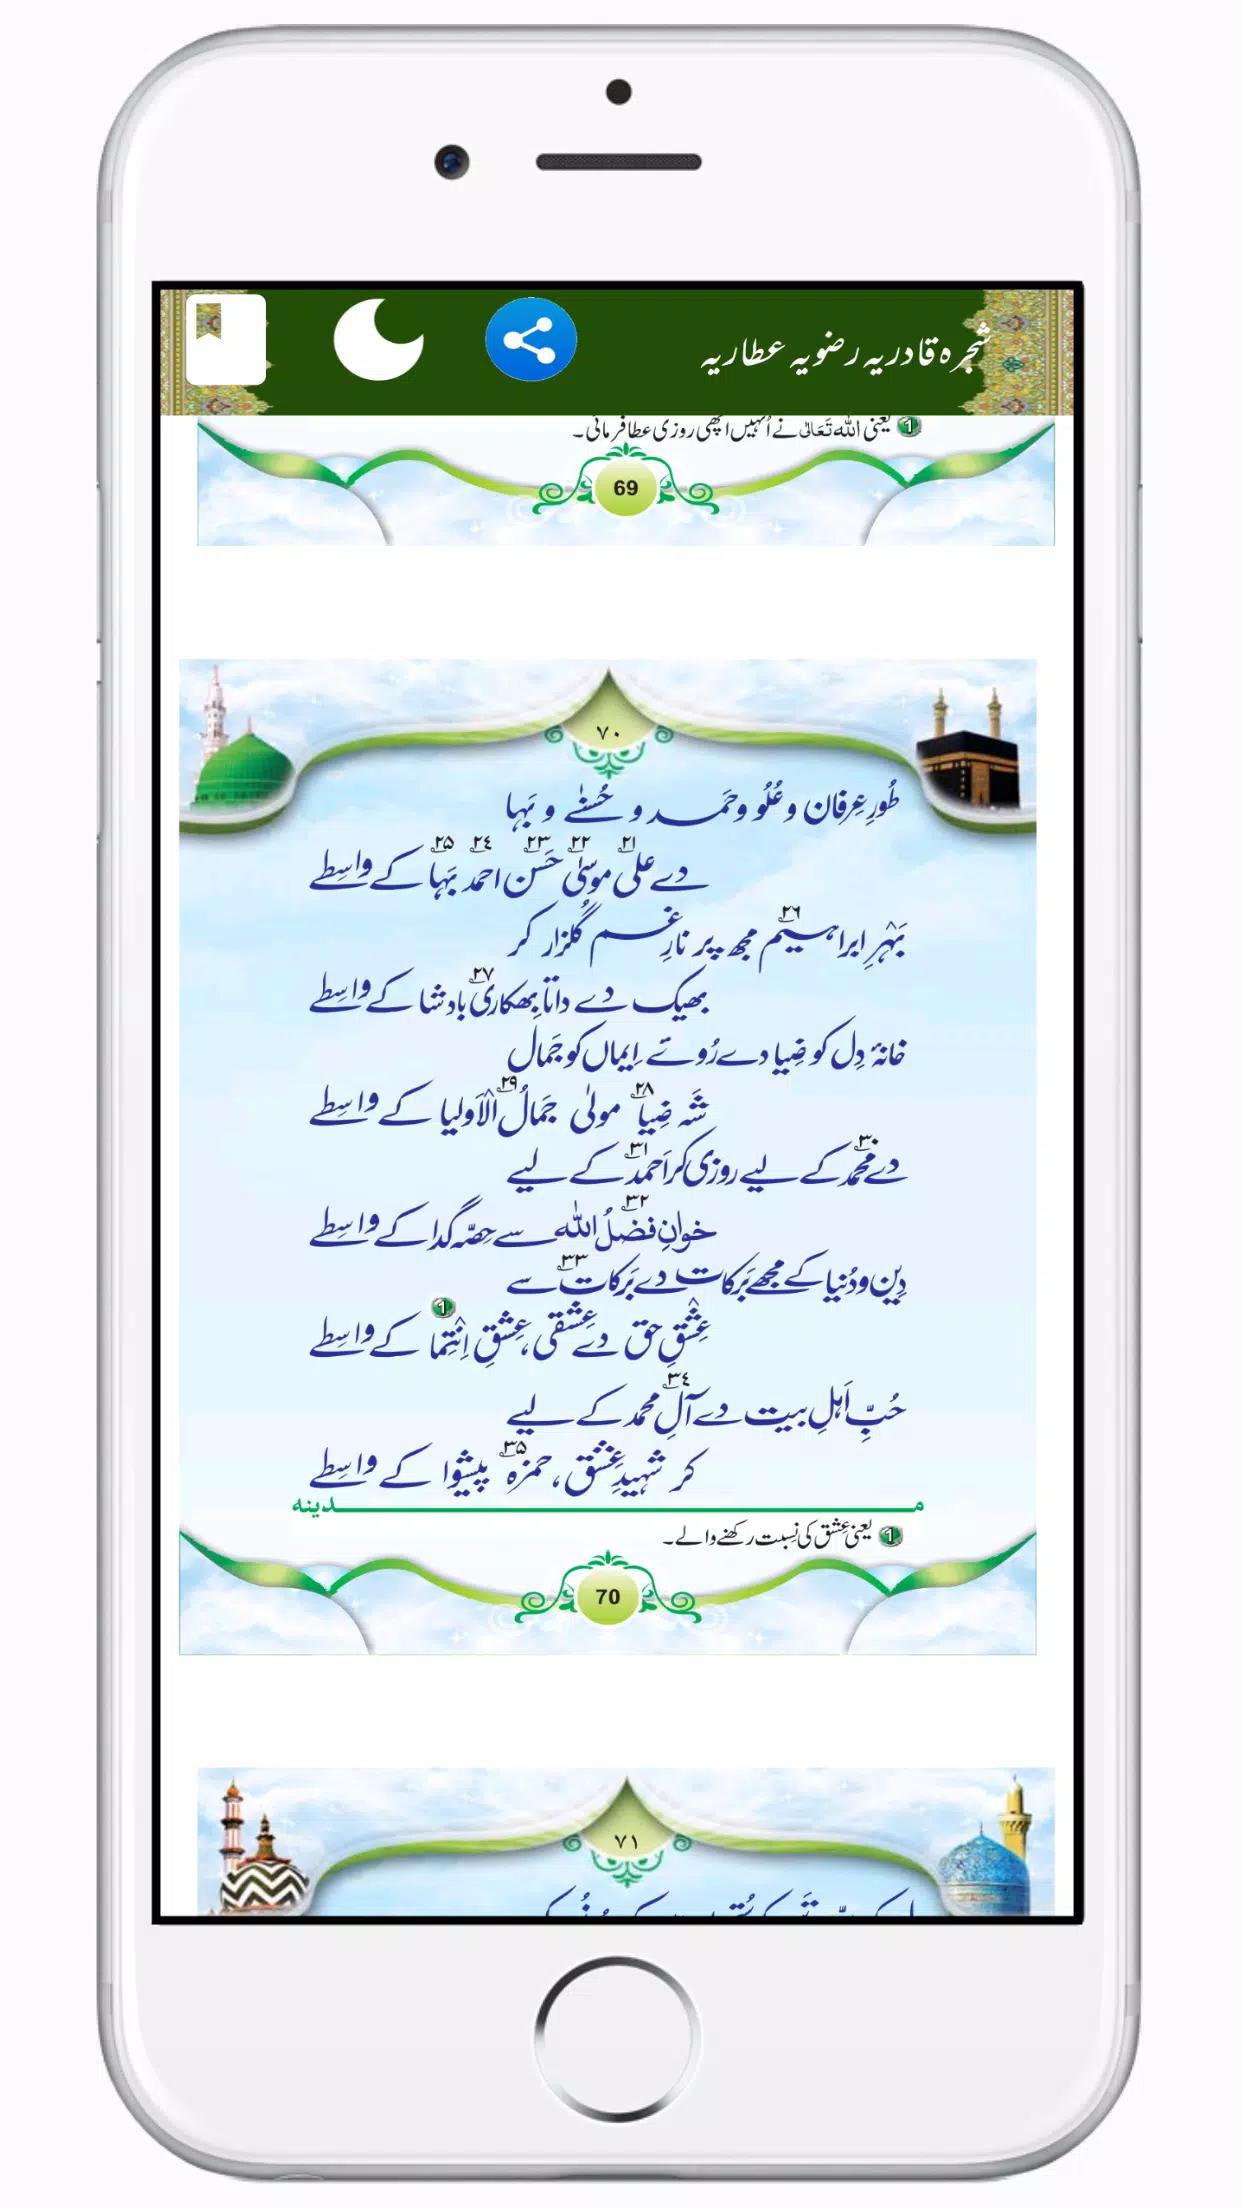 شجرہ قادریہ رضویہ عطاریہ
1 یعنی اللہ تَعَالٰی نے اُنہیں اچھی روزی عطا فرمائی۔
69
٧٠
طُورِ عِرفان و عُلُو و حَمد و حُسنٰے و بَہا
دے علی٢١ موسیٰ٢٢ حَسَن٢٣ احمد٢٤ بَہا٢٥ کے واسِطے
بَہْرِ ابراہیم٢٦ مجھ پر نارِ غم گُلزار کر
بھیک دے داتا بِھکاری٢٧ بادشا کے واسِطے
خانۂ دِل کو ضِیا دے رُوئے اِیماں کو جَمال
شَہ ضِیا٢٨ مولیٰ جَمالُ الْاَولیا٢٩ کے واسِطے
دے محمد٣٠ کے لیے روزی کر اَحمد٣١ کے لیے
خوانِ فضلُ اللہ٣٢ سے حِصّہ گدا کے واسِطے
دِین و دُنیا کے مجھے بَرَکات دے بَرَکات٣٣ سے
عِشْقِ حق دے عِشْقی، عِشقِ اِنْتِما 1 کے واسِطے
حُبِّ اَہلِ بیت دے آلِ محمد٣٤ کے لیے
کر شہیدِ عِشْق، حمزہ٣٥ پیشوا کے واسِطے
مدینہ
1 یعنی عِشق کی نِسبت رکھنے والے۔
70
٧١